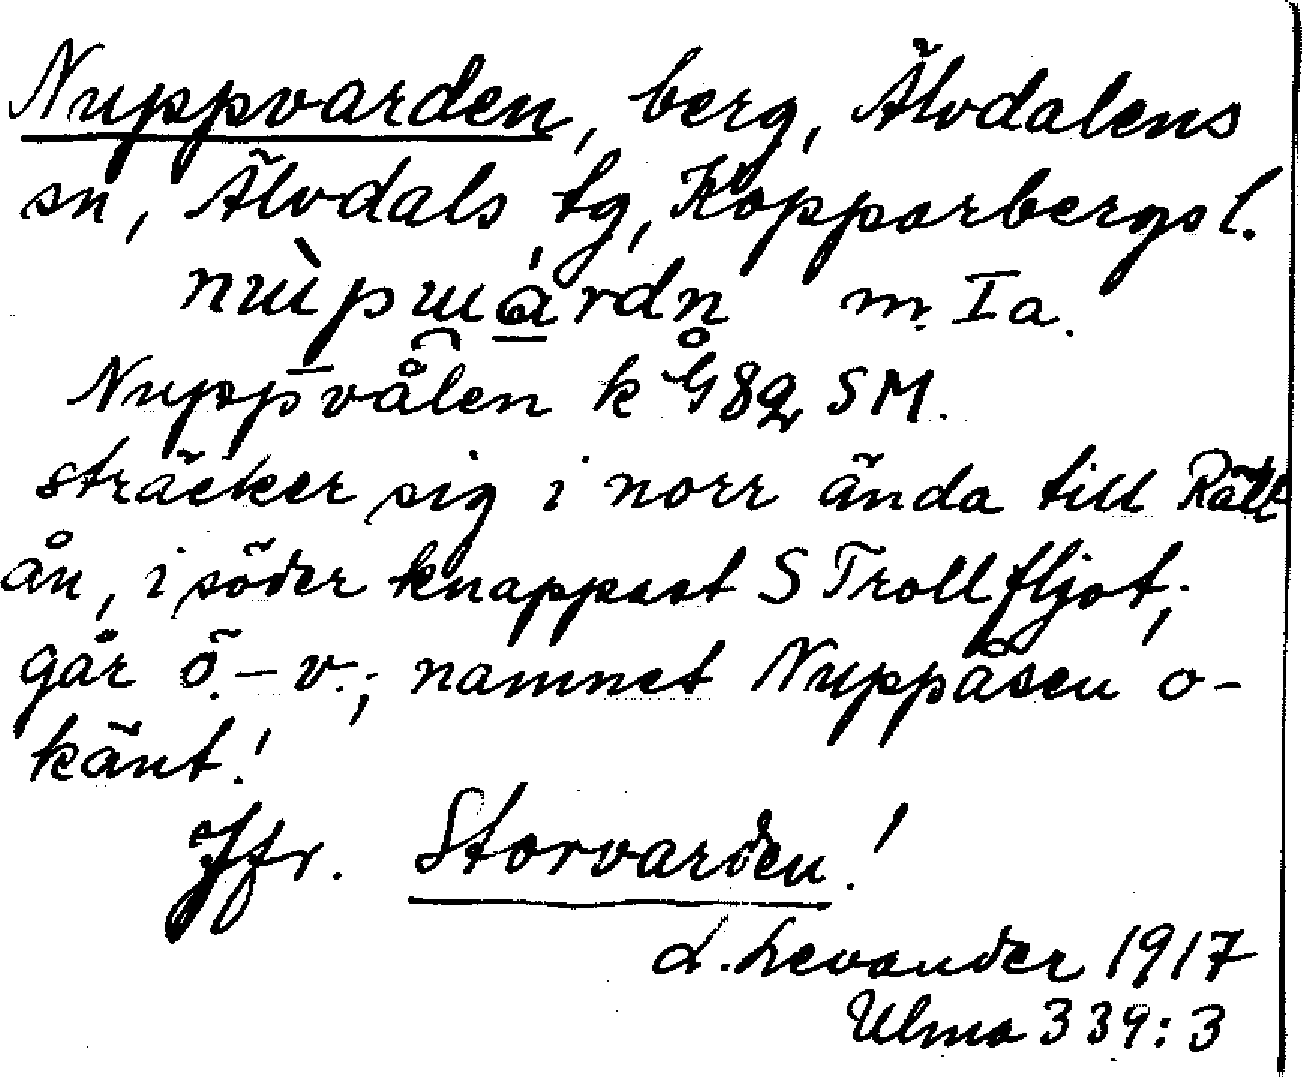 Nuppvarden, berg, Älvdalens
sn, Älvdals tg, Kopparbergs l.
m. Ia.
Nuppvålen k G82 SM.
sträcker sig i norr ända till Rät
ån, i söder knappast S Trollfljot;
går ö.–v.; namnet Nuppåsen o-
känt!
Jfr. Storvarden!
L. Levander 1917
Ulma 339:3